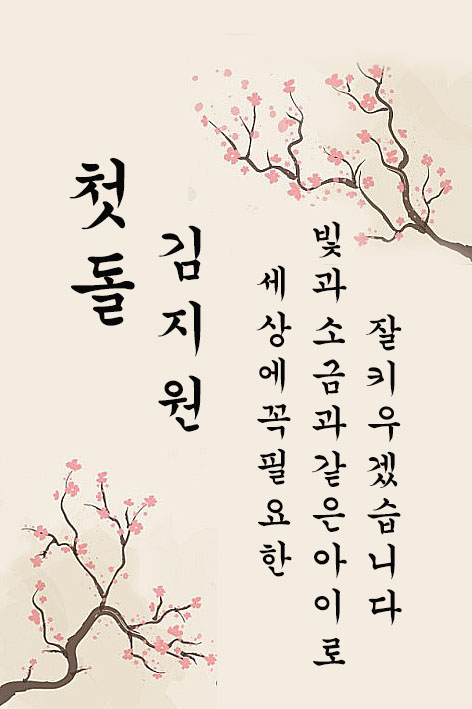 첫돌
김지원
세상에꼭필요한
빛과소금과같은아이로
잘키우겠습니다